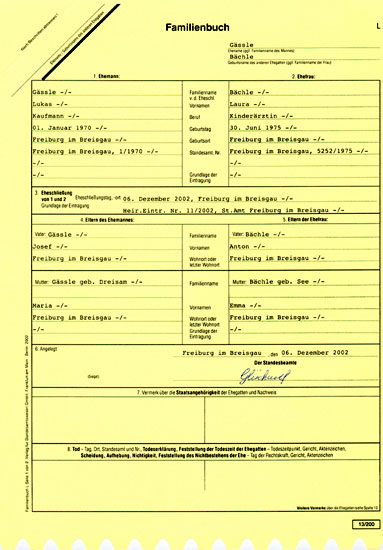 Familienbuch
L
Gässle
Ehename (ggf. Familienname des Mannes)
Bächle
Geburtsname des anderen Ehegatten (ggf. Familienname der Frau)
1. Ehemann:
2. Ehefrau:
Gässle -/- Familienname v. d. Eheschl. Bächle -/-
Lukas -/- Vornamen Laura -/-
Kaufmann -/- Beruf Kinderärztin -/-
01. Januar 1970 -/- Geburtstag 30. Juni 1975 -/-
Freiburg im Breisgau -/- Geburtsort Freiburg im Breisgau -/-
Freiburg im Breisgau, 1/1970 -/- Standesamt, Nr. Freiburg im Breisgau, 5252/1975 -/-
-/- -/-
-/- Grundlage der Eintragung -/-
3. Eheschließung von 1 und 2 Eheschließungstag, -ort 06. Dezember 2002, Freiburg im Breisgau -/-
Grundlage der Eintragung Heir.Eintr. Nr. 11/2002, St.Amt Freiburg im Breisgau -/-
4. Eltern des Ehemannes:
5. Eltern der Ehefrau:
Vater: Gässle -/- Familienname Vater: Bächle -/-
Josef -/- Vornamen Anton -/-
Freiburg im Breisgau -/- Wohnort oder letzter Wohnort Freiburg im Breisgau -/-
Mutter: Gässle geb. Dreisam -/- Familienname Mutter: Bächle geb. See -/-
Maria -/- Vornamen Emma -/-
Freiburg im Breisgau -/- Wohnort oder letzter Wohnort Freiburg im Breisgau -/-
-/- Grundlage der Eintragung -/-
6. Angelegt
Freiburg im Breisgau , den 06. Dezember 2002
Der Standesbeamte
(Siegel)
7. Vermerk über die Staatsangehörigkeit der Ehegatten und Nachweis
8. Tod - Tag, Ort, Standesamt und Nr., Todeserklärung, Feststellung der Todeszeit der Ehegatten - Todeszeitpunkt, Gericht, Aktenzeichen,
Scheidung, Aufhebung, Nichtigkeit, Feststellung des Nichtbestehens der Ehe - Tag der Rechtskraft, Gericht, Aktenzeichen
13/200